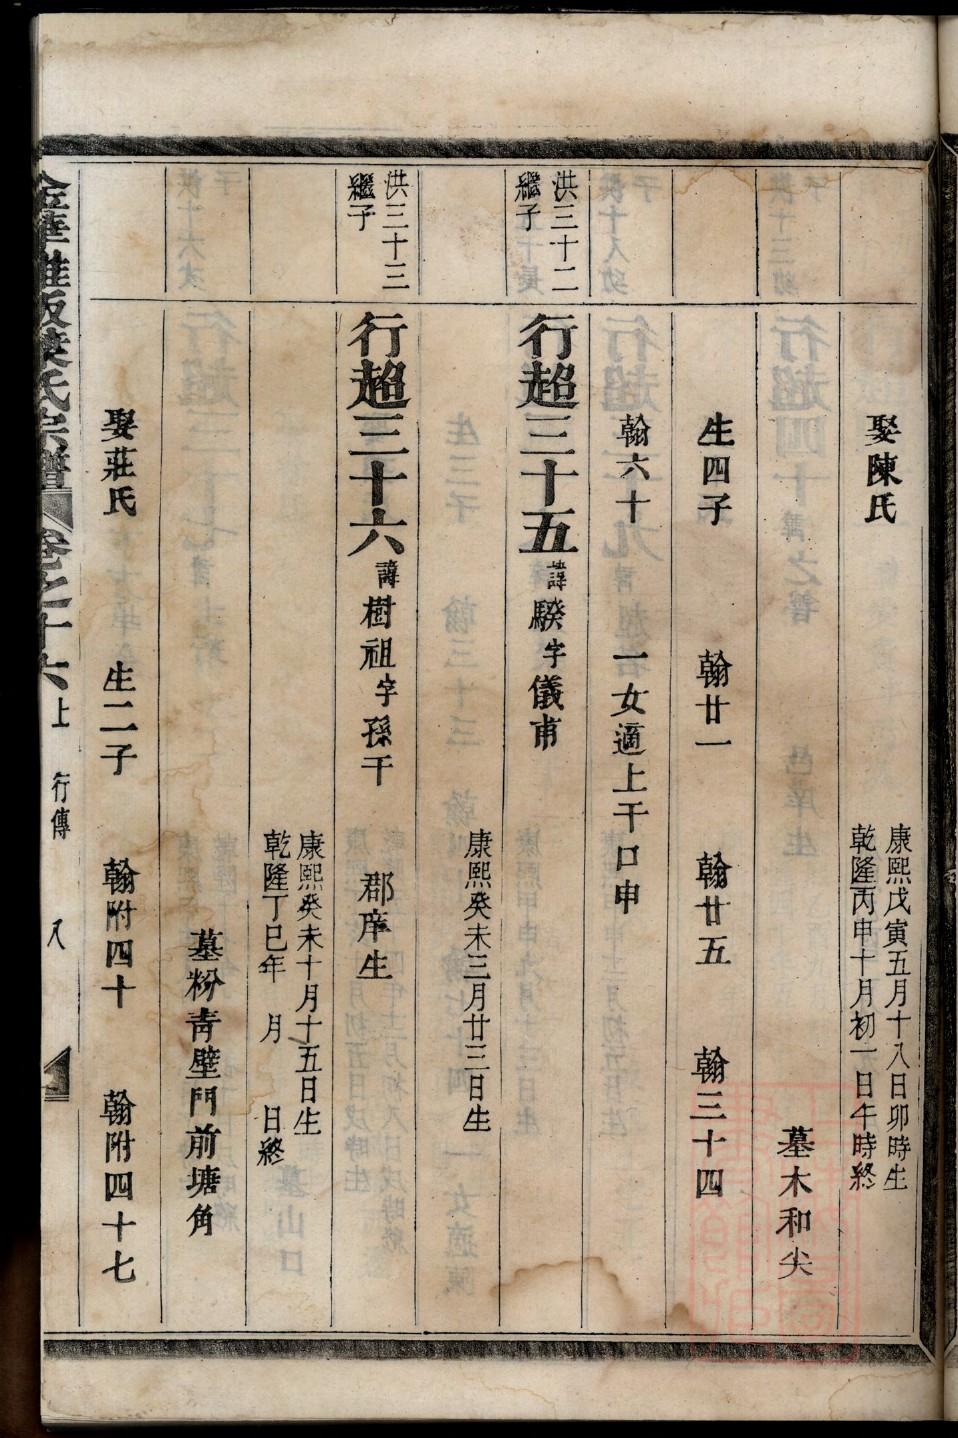 娶陳氏
康熙戊寅五月十八日卯時生
乾隆丙申十月初一日午時終
墓木和尖
生四子 翰廿一 翰廿五 翰三十四
翰六十 一女適上干口申
洪三十二
繼子
行超三十五 諱騤字儀甫
康熙癸未三月廿三日生
洪三十三
繼子
行超三十六 諱樹祖字孫干 郡庠生
康熙癸未十月十五日生
乾隆丁巳年 月 日終
墓粉青壁門前塘角
娶莊氏 生二子 翰附四十 翰附四十七
氏宗譜 卷之十六上 行傳 八